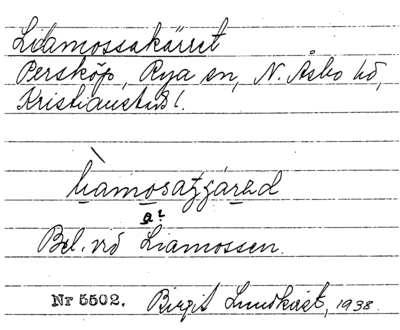 Liamossakärret
Persköp, Rya sn, N. Åsbo hd,
Kristianstads l.
Bel. vid Liamossen.
Nr 5502. Birgit Lundkvist, 1938